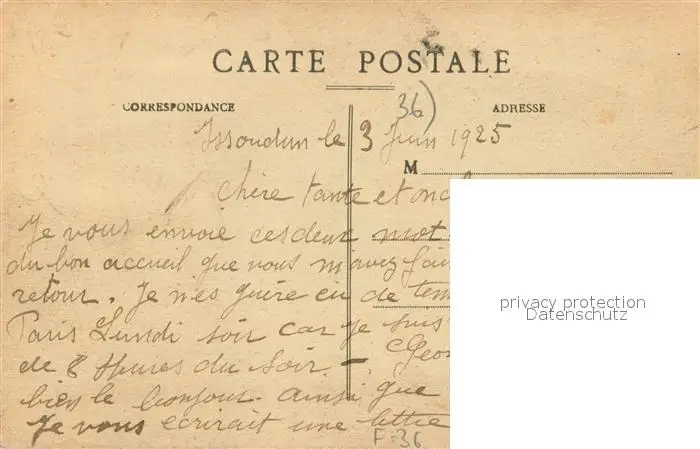 CARTE POSTALE
CORRESPONDANCE
36)
ADRESSE
Issoudun le 3 Juin 1925
M
Chère tante et oncl
Je vous envoie ces deux mot
du bon accueil que vous m'avez fai
retour. Je n'es guère eu de tem
Paris Lundi soir car je suis
de 8 Heures du soir -. Geor
bien le bonjour ainsi que
Je vous ecrirait une lettre
F-36
privacy protection
Datenschutz